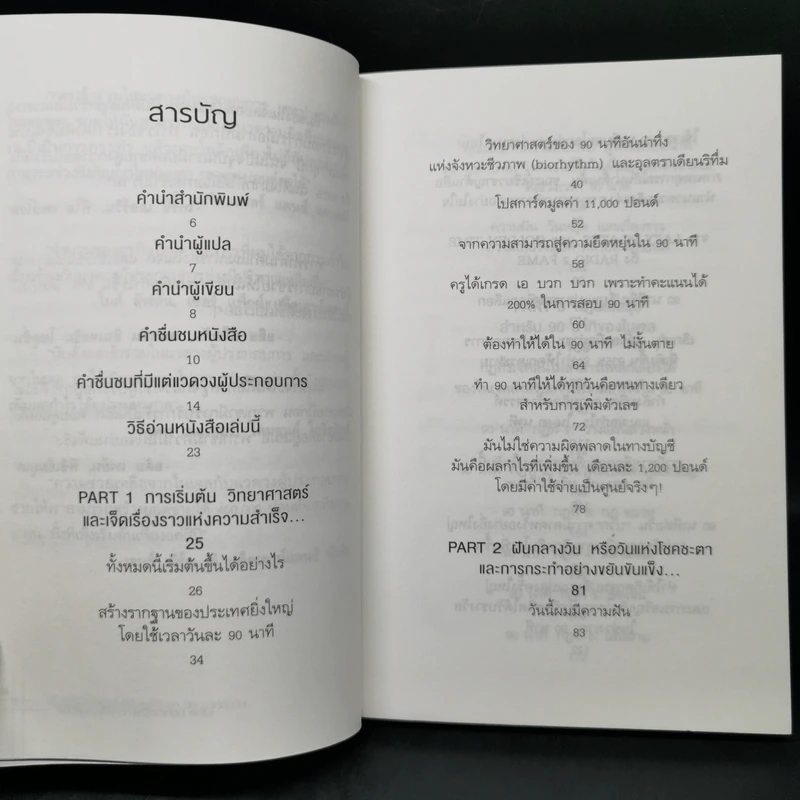 สารบัญ
คำนำสำนักพิมพ์
6
คำนำผู้แปล
7
คำนำผู้เขียน
8
คำชื่นชมหนังสือ
10
คำชื่นชมที่มีแต่แวดวงผู้ประกอบการ
14
วิธีอ่านหนังสือเล่มนี้
23
PART 1 การเริ่มต้น วิทยาศาสตร์
และเจ็ดเรื่องราวแห่งความสำเร็จ...
25
ทั้งหมดนี้เริ่มต้นขึ้นได้อย่างไร
26
สร้างรากฐานของประเทศยิ่งใหญ่
โดยใช้เวลาวันละ 90 นาที
34
วิทยาศาสตร์ของ 90 นาทีอันน่าทึ่ง
แห่งจังหวะชีวภาพ (biorhythm) และอุลตราเดียนริทึ่ม
40
โปสการ์ดมูลค่า 11,000 ปอนด์
52
จากความสามารถสู่ความยืดหยุ่นใน 90 นาที
58
ครูได้เกรด เอ บวก บวก เพราะทำคะแนนได้
200% ในการสอบ 90 นาที
60
ต้องทำให้ได้ใน 90 นาที ไม่งั้นตาย
64
ทำ 90 นาทีให้ได้ทุกวันคือหนทางเดียว
สำหรับการเพิ่มตัวเลข
72
มันไม่ใช่ความผิดพลาดในทางบัญชี
มันคือผลกำไรที่เพิ่มขึ้น เดือนละ 1,200 ปอนด์
โดยมีค่าใช้จ่ายเป็นศูนย์จริงๆ!
78
PART 2 ฝันกลางวัน หรือวันแห่งโชคชะตา
และการกระทำอย่างขยันขันแข็ง...
81
วันนี้ผมมีความฝัน
83